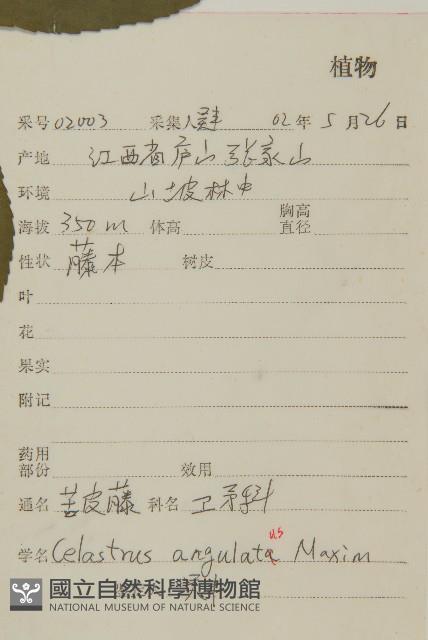 植物
采号 02003 采集人 02年5月26日
产地 江西省庐山张家山
环境 山坡林中
海拔 350m 体高 胸高直径
性状 藤本 树皮
叶
花
果实
附记
药用部份 效用
通名 苦皮藤 科名 卫矛科
us
学名 Celastrus angulata Maxim
國立自然科學博物館
NATIONAL MUSEUM OF NATURAL SCIENCE